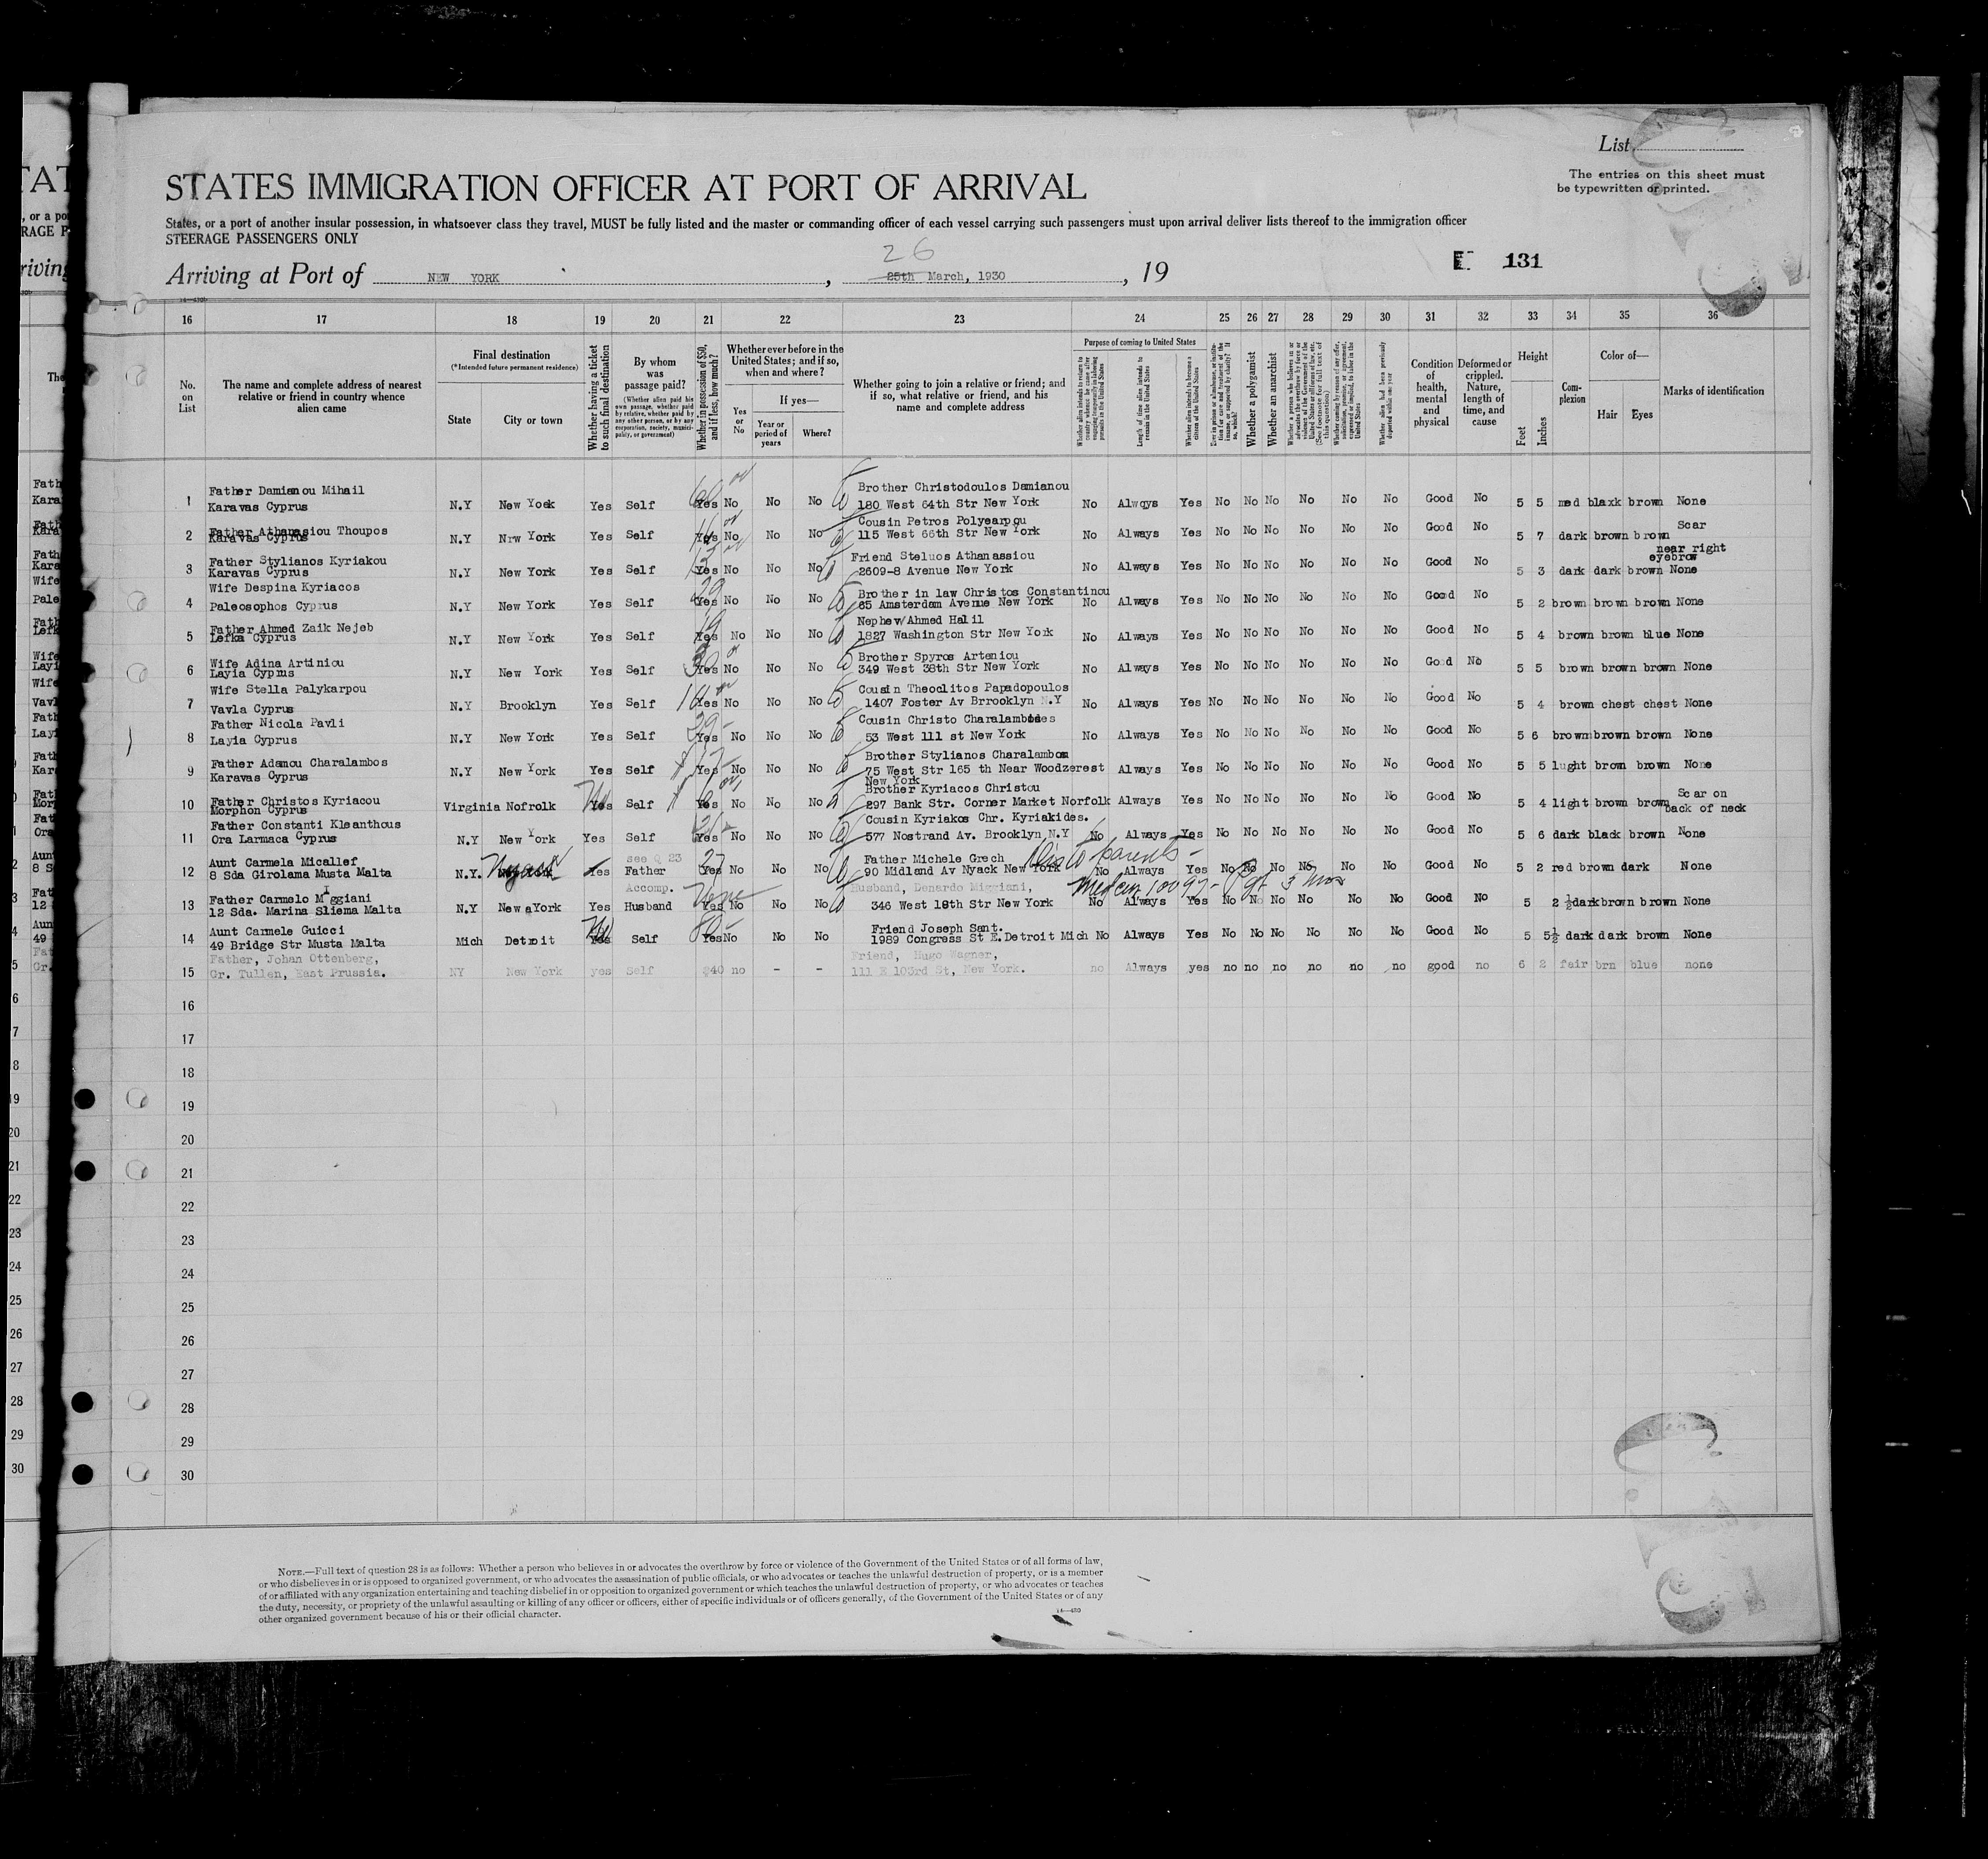 List
The entries on this sheet must
be typewritten or printed.
STATES IMMIGRATION OFFICER AT PORT OF ARRIVAL
States, or a port of another insular possession, in whatsoever class they travel, MUST be fully listed and the master or commanding officer of each vessel carrying such passengers must upon arrival deliver lists thereof to the immigration officer
STEERAGE PASSENGERS ONLY
26
Arriving at Port of NEW YORK , 25th March, 1930 , 19
131
16 17 18 19 20 21 22 23 24 25 26 27 28 29 30 31 32 33 34 35 36
No. on List
The name and complete address of nearest relative or friend in country whence alien came
Final destination
(*Intended future permanent residence)
State
City or town
Whether having a ticket to such final destination
By whom was passage paid?
(Whether alien paid his own passage, whether paid by relative, whether paid by any other person, or by any corporation, society, municipality, or government)
Whether in possession of $50, and if less, how much?
Whether ever before in the United States; and if so, when and where?
Yes or No
If yes—
Year or period of years
Where?
Whether going to join a relative or friend; and if so, what relative or friend, and his name and complete address
Purpose of coming to United States
Length of time alien intends to remain in the United States
Whether alien intends to become a citizen of the United States
Whether a polygamist
Whether an anarchist
Condition of health, mental and physical
Deformed or crippled. Nature, length of time, and cause
Height
Feet
Inches
Complexion
Color of—
Hair
Eyes
Marks of identification
Father Damianou Mihail Brother Christodoulos Damianou
1 Karavas Cyprus N.Y New York Yes Self Yes No No No 180 West 64th Str New York No Always Yes No No No No No No Good No 5 5 med blaxk brown None
Father Athanasiou Thoupos Cousin Petros Polyearpou Scar
2 Karavas Cyprus N.Y Nrw York Yes Self Yes No No No 115 West 66th Str New York No Always Yes No No No No No No Good No 5 7 dark brown brown near right eyebrow
Father Stylianos Kyriakou Friend Steluos Athanassiou
3 Karavas Cyprus N.Y New York Yes Self Yes No No No 2609-8 Avenue New York No Always Yes No No No No No No Good No 5 3 dark dark brown None
Wife Despina Kyriacos Brother in law Christos Constantinou
4 Paleosophos Cyprus N.Y New York Yes Self Yes No No No 65 Amsterdam Avenue New York No Always Yes No No No No No No Good No 5 2 brown brown brown None
Father Ahmed Zaik Nejeb Nephew/Ahmed Halil
5 Lefka Cyprus N.Y New York Yes Self Yes No No No 1827 Washington Str New York No Always Yes No No No No No No Good No 5 4 brown brown blue None
Wife Adina Artiniou Brother Spyros Arteniou
6 Layia Cyprus N.Y New York Yes Self Yes No No No 349 West 38th Str New York No Always Yes No No No No No No Good No 5 5 brown brown brown None
Wife Stella Palykarpou Cousin Theoclitos Papadopoulos
7 Vavla Cyprus N.Y Brooklyn Yes Self Yes No No No 1407 Foster Av Brrooklyn N.Y No Always Yes No No No No No No Good No 5 4 brown chest chest None
Father Nicola Pavli Cousin Christo Charalambdes
8 Layia Cyprus N.Y New York Yes Self Yes No No No 53 West 111 st New York No Always Yes No No No No No No Good No 5 6 brown brown brown None
Father Adamou Charalambos Brother Stylianos Charalambom
9 Karavas Cyprus N.Y New York Yes Self Yes No No No 75 West Str 165 th Near Woodzerest Always Yes No No No No No No Good No 5 5 lught brown brown None
New York
Father Christos Kyriacou Brother Kyriacos Christou Scar on
10 Morphon Cyprus Virginia Nofrolk Yes Self Yes No No No 897 Bank Str. Corner Market Norfolk Always Yes No No No No No No Good No 5 4 light brown brown back of neck
Father Constanti Kleanthous Cousin Kyriakos Chr. Kyriakides.
11 Ora Larmaca Cyprus N.Y New York Yes Self Yes No No No 577 Nostrand Av. Brooklyn N.Y No Always Yes No No No No No No Good No 5 6 dark black brown None
Aunt Carmela Micallef see Q 23 27 Father Michele Grech parents
12 8 Sda Girolama Musta Malta N.Y. Nyack Yes Father Yes No No No 90 Midland Av Nyack New York No Always Yes No No No No No No Good No 5 2 red brown dark None
Father Carmelo Miggiani Accomp. Husband, Denardo Miggiani,
13 12 Sda. Marina Sliema Malta N.Y New York Yes Husband Yes No No No 346 West 18th Str New York No Always Yes No No No No No No Good No 5 2 ½ dark brown brown None
Aunt Carmele Guicci Friend Joseph Sant.
14 49 Bridge Str Musta Malta Mich Detroit Yes Self Yes No No No 1989 Congress St E.Detroit Mich No Always Yes No No No No No No Good No 5 5½ dark dark brown None
Father, Johan Ottenberg, Friend, Hugo Wagner,
15 Gr. Tullen, East Prussia. NY New York yes Self $40 no - - 111 E 103rd St, New York. no Always yes no no no no no no good no 6 2 fair brn blue none
16
17
18
19
20
21
22
23
24
25
26
27
28
29
30
NOTE.—Full text of question 28 is as follows: Whether a person who believes in or advocates the overthrow by force or violence of the Government of the United States or of all forms of law,
or who disbelieves in or is opposed to organized government, or who advocates the assassination of public officials, or who advocates or teaches the unlawful destruction of property, or is a member
of or affiliated with any organization entertaining and teaching disbelief in or opposition to organized government or which teaches the unlawful destruction of property, or who advocates or teaches
the duty, necessity, or propriety of the unlawful assaulting or killing of any officer or officers, either of specific individuals or of officers generally, of the Government of the United States or of any
other organized government because of his or their official character.